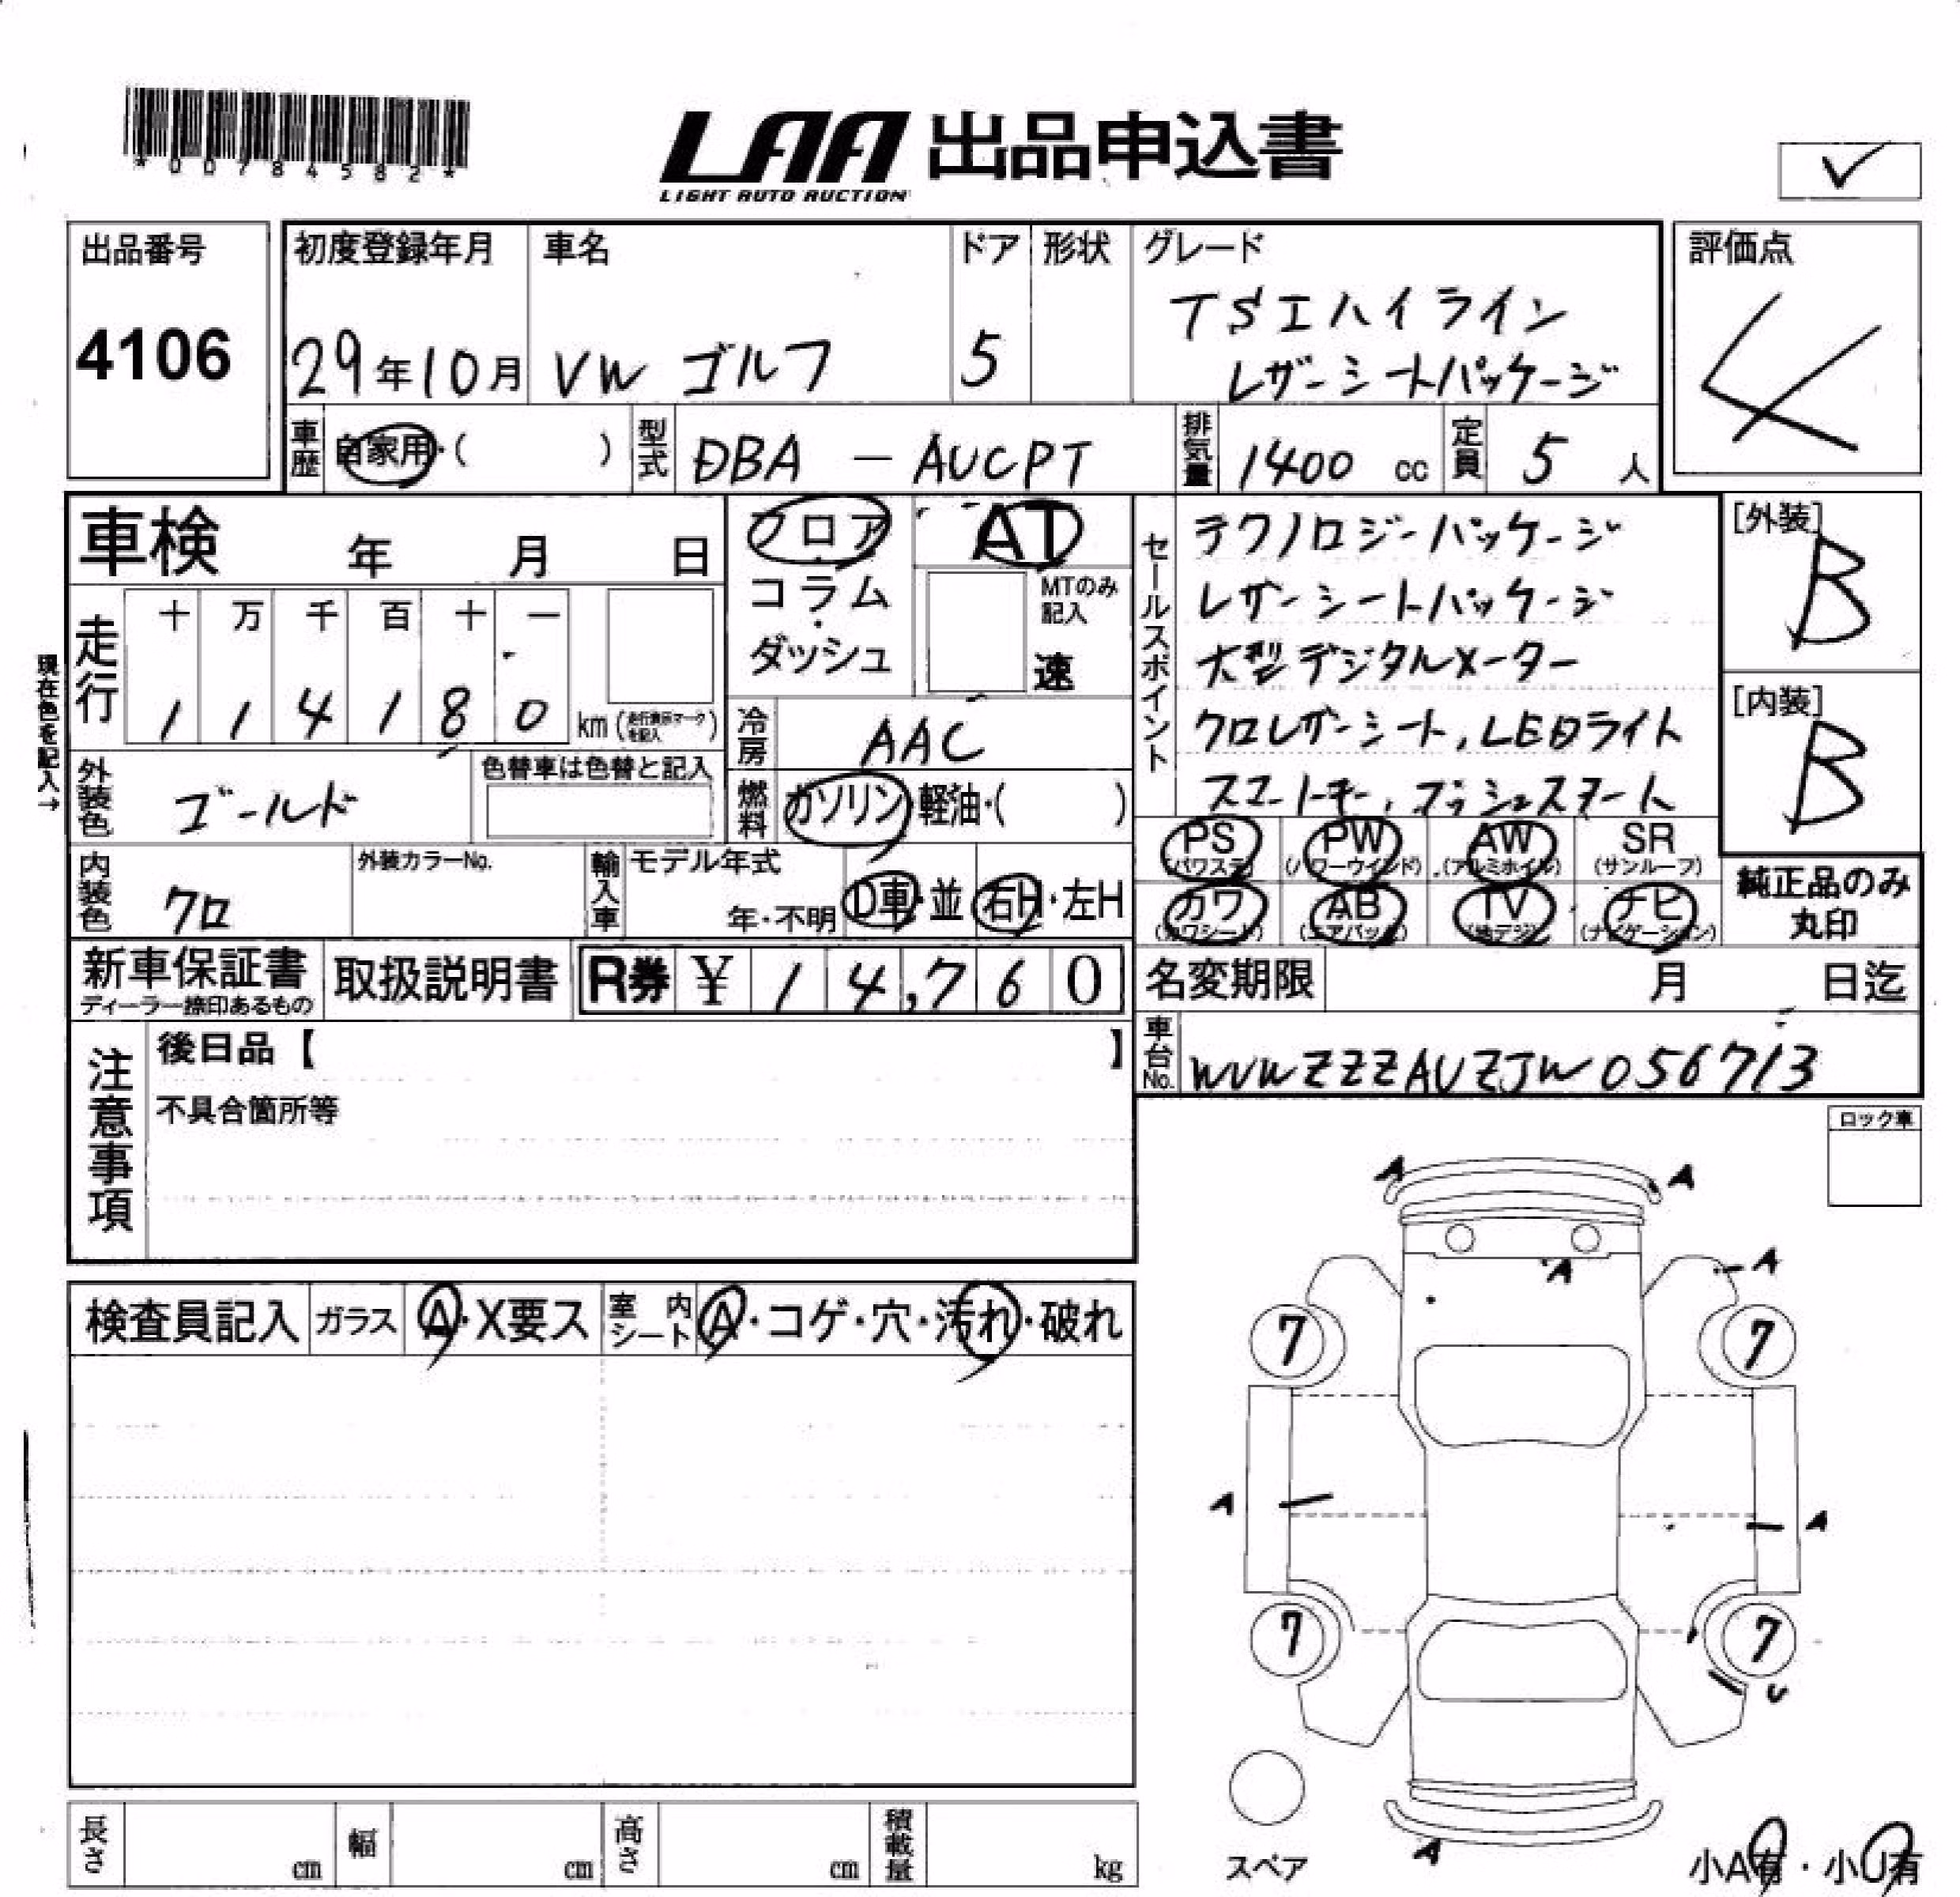 *00784582*
LAA 出品申込書
LIGHT AUTO AUCTION
出品番号
4106
初度登録年月
29年10月
車名
VW ゴルフ
ドア
5
形状
グレード
TSIハイライン
レザーシートパッケージ
評価点
4
車歴 自家用・( )
型式 DBA - AUCPT
排気量 1400 cc
定員 5 人
車検 年 月 日
フロア
・
コラム
・
ダッシュ
AT
MTのみ記入
速
セールスポイント
テクノロジーパッケージ
レザーシートパッケージ
大型デジタルメーター
クロレザーシート,LEDライト
スマートキー,プッシュスタート
[外装]
B
[内装]
B
現在色を記入→
走行
十 万 千 百 十 一
1 1 4 1 8 0 km (走行表示マークを記入)
冷房 AAC
外装色 ゴールド
色替車は色替と記入
燃料 ガソリン・軽油・( )
PS (パワステ)
PW (パワーウインド)
AW (アルミホイル)
SR (サンルーフ)
カワ (カワシート)
AB (エアバック)
TV (地デジ)
ナビ (ナビゲーション)
純正品のみ
丸印
内装色 クロ
外装カラーNo.
輸入車
モデル年式
年・不明
D車・並
右H・左H
新車保証書
ディーラー捺印あるもの
取扱説明書
R券 ¥ 14,760
名変期限 月 日迄
車台No. WVWZZZAUZJW056713
注意事項
後日品【 】
不具合箇所等
ロック車
検査員記入
ガラス A・X要ス
室内シート A・コゲ・穴・汚れ・破れ
A A
A A
7 7
A A
7 7
U
A
スペア
小A有・小U有
長さ cm
幅 cm
高さ cm
積載量 kg